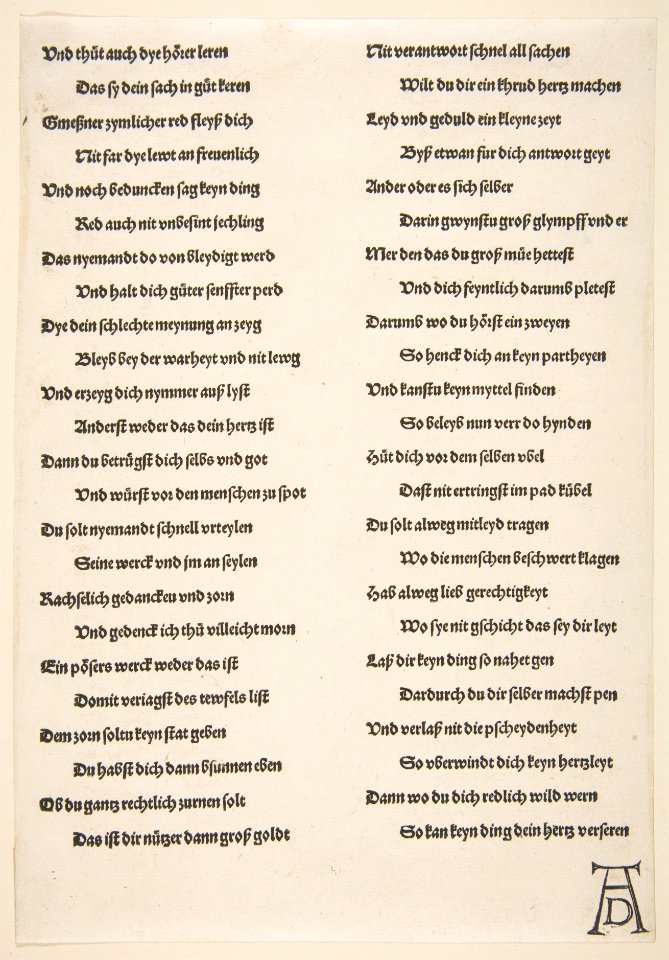 Vnd thůt auch dye hőrer leren
Das sy dein sach in gůt keren
Gmeßner zymlicher red fleyß dich
Nit far dye lewt an freuenlich
Vnd noch beduncken sag keyn ding
Red auch nit vnbesint jechling
Das nyemandt do von bleydigt werd
Vnd halt dich gůter senffter perd
Dye dein schlechte meynung an zeyg
Bleyb bey der warheyt vnd nit lewg
Vnd erzeyg dich nymmer auß lyst
Anderst weder das dein hertz ist
Dann du betrůgst dich selbs vnd got
Vnd wůrst vor den menschen zu spot
Du solt nyemandt schnell vrteylen
Seine werck vnd jm an seylen
Rachselich gedanckeu vnd zorn
Vnd gedenck ich thů villeicht morn
Ein pősers werck weder das ist
Domit veriagst des tewfels list
Dem zorn soltu keyn stat geben
Du habst dich dann bsunnen eben
Ob du gantz rechtlich zurnen solt
Das ist dir nůtzer dann groß goldt
Nit verantwort schnel all sachen
Wilt du dir ein khrud hertz machen
Leyd vnd geduld ein kleyne zeyt
Byß etwan fur dich antwort geyt
Ander oder es sich selber
Darin gwynstu groß glympff vnd er
Mer den das du groß můe hettest
Vnd dich feyntlich darumb pletest
Darumb wo du hőrst ein zweyen
So henck dich an keyn partheyen
Vnd kanstu keyn myttel finden
So beleyb nun verr do hynden
Hůt dich vor dem selben vbel
Dast nit ertringst im pad kůbel
Du solt alweg mitleyd tragen
Wo die menschen beschwert klagen
Hab alweg lieb gerechtigkeyt
Wo sye nit gschicht das sey dir leyt
Laß dir keyn ding so nahet gen
Dardurch du dir selber machst pen
Vnd verlaß nit die pscheydenheyt
So vberwindt dich keyn hertzleyt
Dann wo du dich redlich wild wern
So kan keyn ding dein hertz verseren
AD